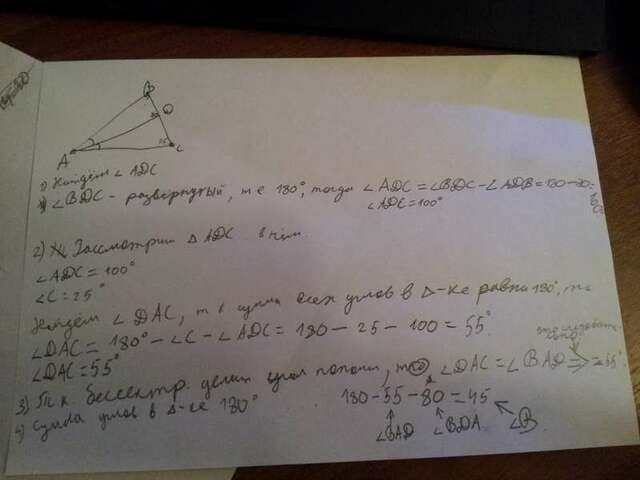 B
D
80
A
25
C
1) Найдём ∠ADC
∠BDC - развёрнутый, т е 180°, тогда ∠ADC = ∠BDC - ∠ADB = 180 - 80 =
∠ADC = 100°
2) Рассмотрим △ ADC в нём
∠ADC = 100°
∠C = 25°
Найдём ∠DAC, т к сумма всех углов в △-ке равна 180°, то
∠DAC = 180° - ∠C - ∠ADC = 180 - 25 - 100 = 55°
∠DAC = 55°
3) Т к бессектр. делит угол попалам, то ∠DAC = ∠BAD = 55°
4) Сумма углов в △-ке 180°
180 - 55 - 80 = 45
∠BAD ∠BDA ∠B